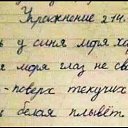 Упражнение 214.
ь у синя моря ха
я моря глаз не св
- поверх текучих
ь белая плывёт